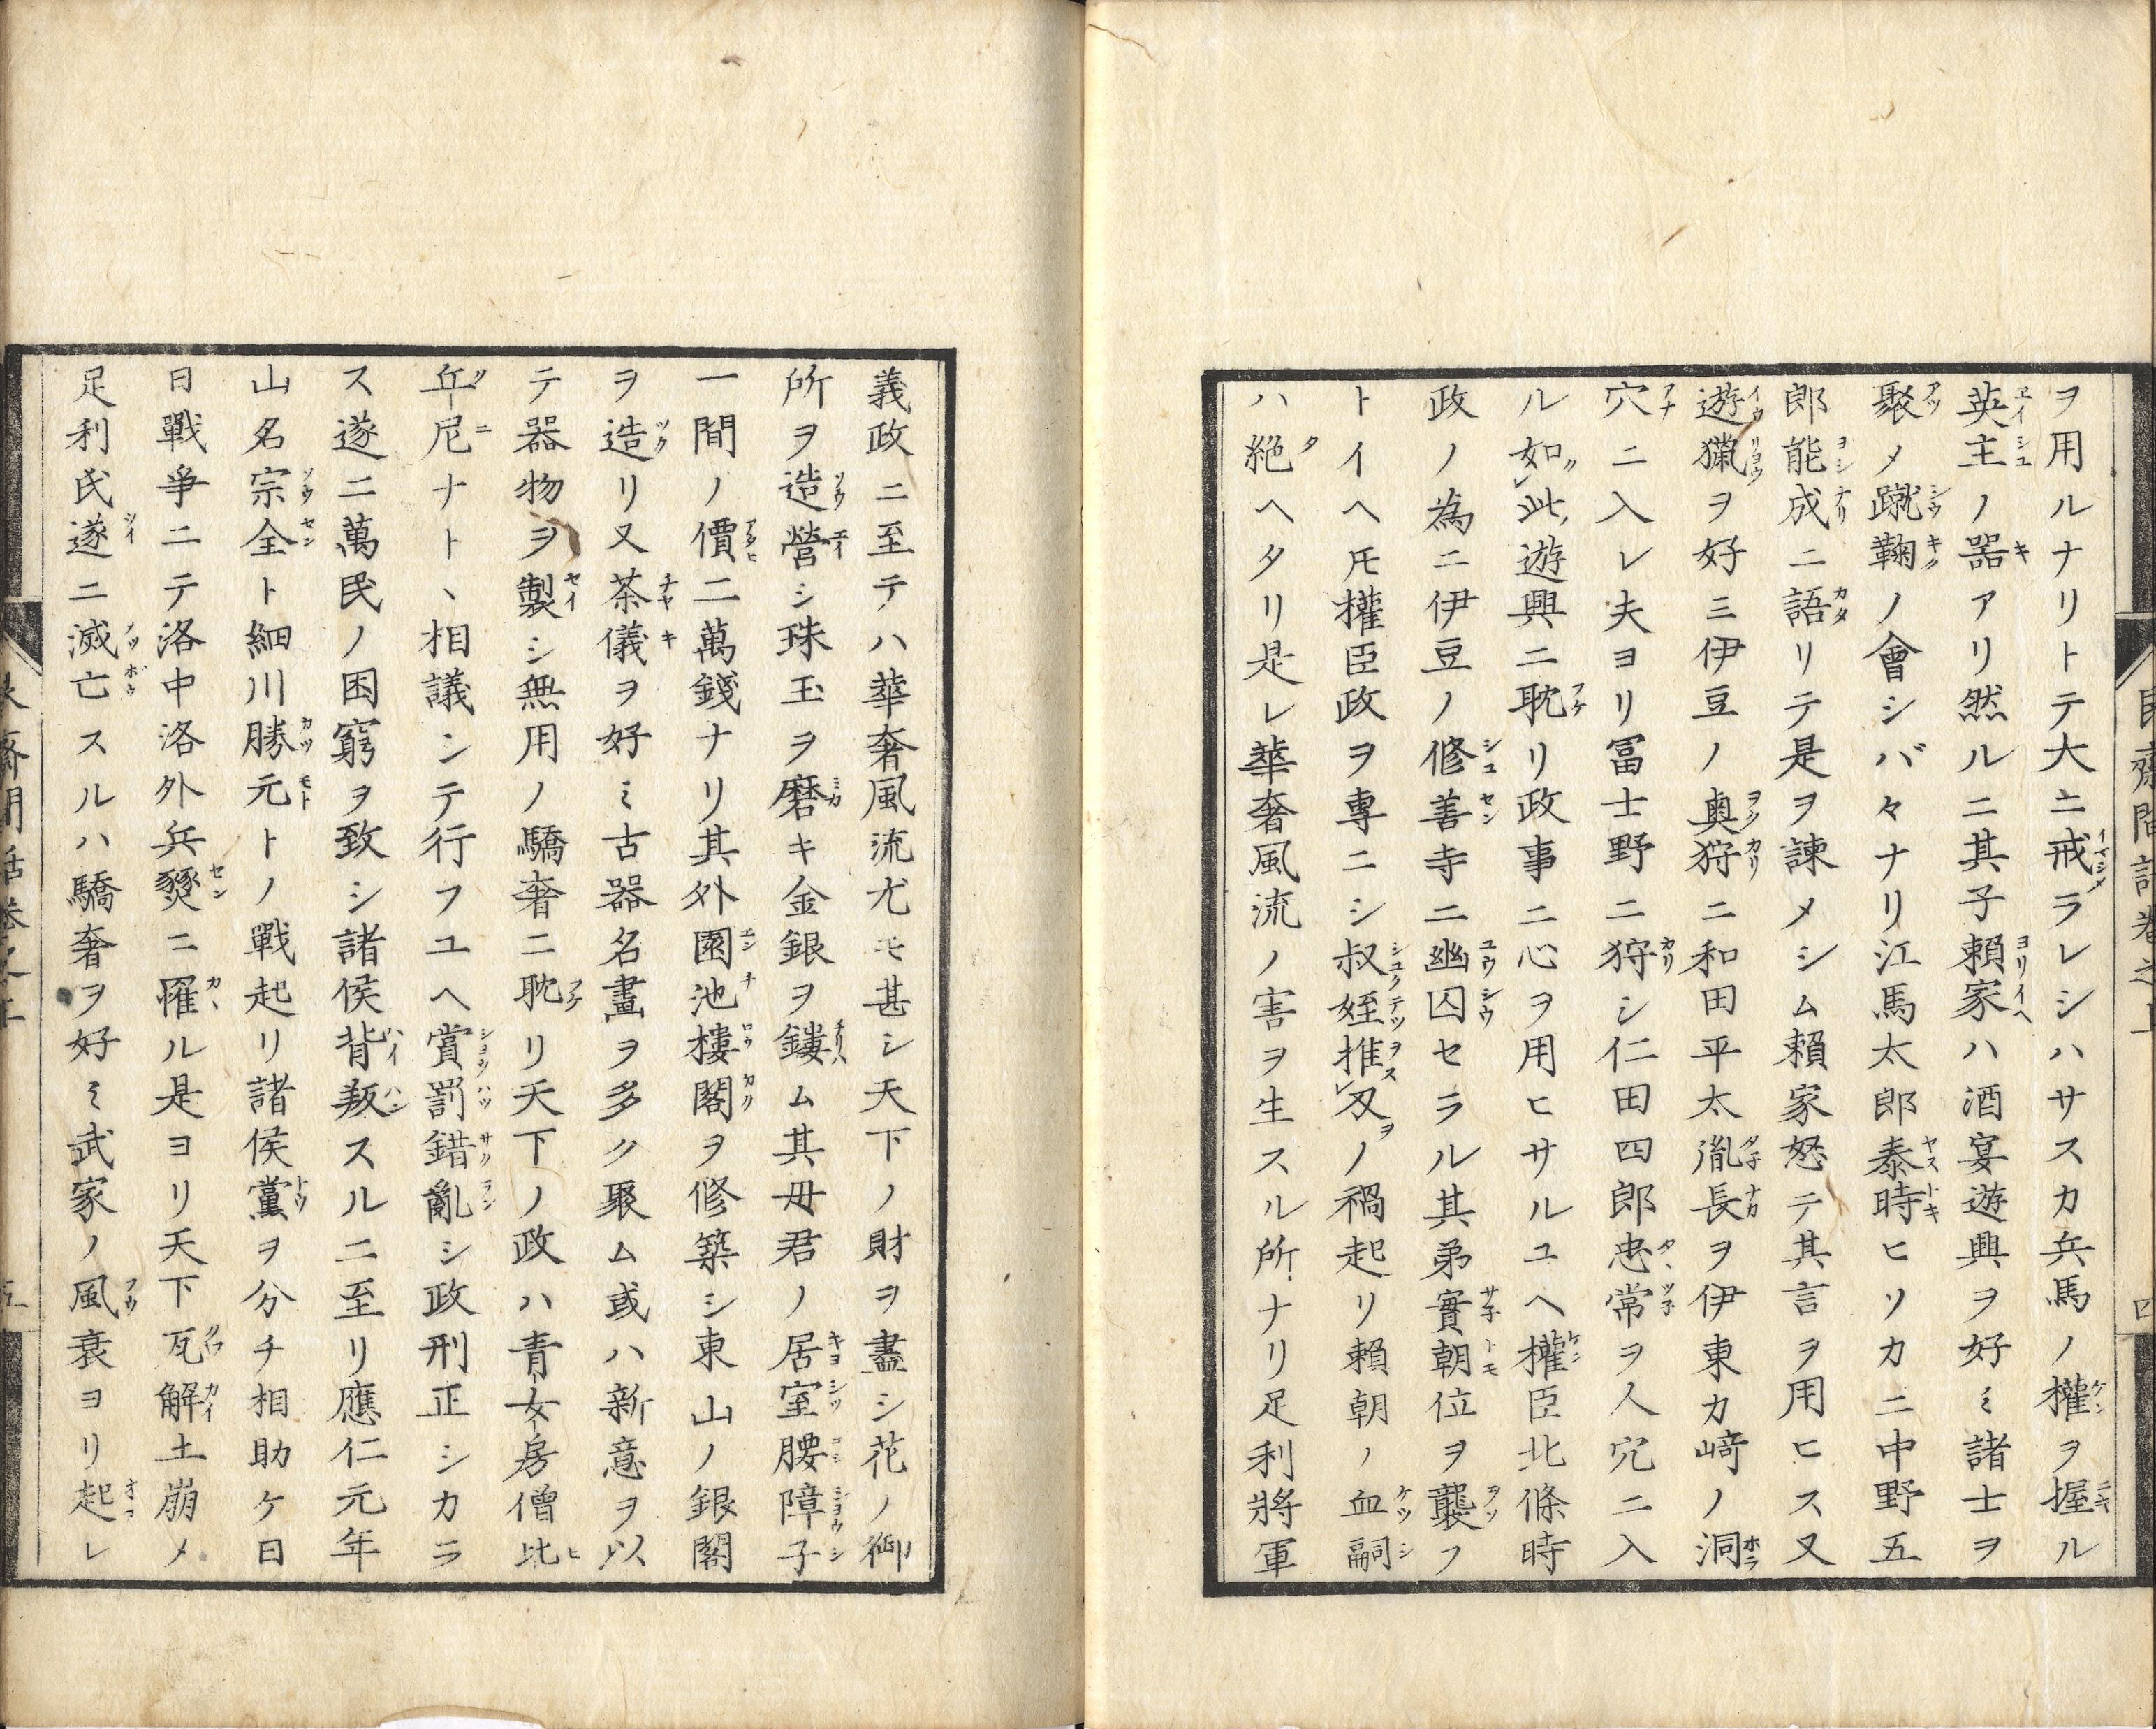 ヲ用ルナリトテ大ニ戒ラレシハサスカ兵馬ノ權ヲ握ル
英主ノ器アリ然ルニ其子賴家ハ酒宴遊興ヲ好ミ諸士ヲ
聚メ蹴鞠ノ會シバ々ナリ江馬太郎泰時ヒソカニ中野五
郎能成ニ語リテ是ヲ諫メシム賴家怒テ其言ヲ用ヒス又
遊獵ヲ好ミ伊豆ノ奥狩ニ和田平太胤長ヲ伊東カ﨑ノ洞
穴ニ入レ夫ヨリ冨士野ニ狩シ仁田四郎忠常ヲ人穴ニ入
ル如此遊興ニ耽リ政事ニ心ヲ用ヒサルユヘ權臣北條時
政ノ為ニ伊豆ノ修善寺ニ幽囚セラル其弟實朝位ヲ襲フ
トイヘ𪜈權臣政ヲ專ニシ叔姪推刄ノ禍起リ賴朝ノ血嗣
ハ絕ヘタリ是レ華奢風流ノ害ヲ生スル所ナリ足利將軍
義政ニ至テハ華奢風流尤モ甚シ天下ノ財ヲ盡シ花ノ御
所ヲ造營シ珠玉ヲ磨キ金銀ヲ鏤ム其母君ノ居室腰障子
一間ノ價二萬錢ナリ其外園池樓閣ヲ修築シ東山ノ銀閣
ヲ造リ又茶儀ヲ好ミ古器名畫ヲ多ク聚ム或ハ新意ヲ以
テ器物ヲ製シ無用ノ驕奢ニ耽リ天下ノ政ハ青女房僧比
丘尼ナトヽ相議シテ行フユヘ賞罰錯亂シ政刑正シカラ
ス遂ニ萬民ノ困窮ヲ致シ諸侯背叛スルニ至リ應仁元年
山名宗全ト細川勝元トノ戰起リ諸侯黨ヲ分チ相助ケ日
日戰爭ニテ洛中洛外兵燹ニ罹ル是ヨリ天下瓦解土崩メ
足利氏遂ニ滅亡スルハ驕奢ヲ好ミ武家ノ風衰ヨリ起レ